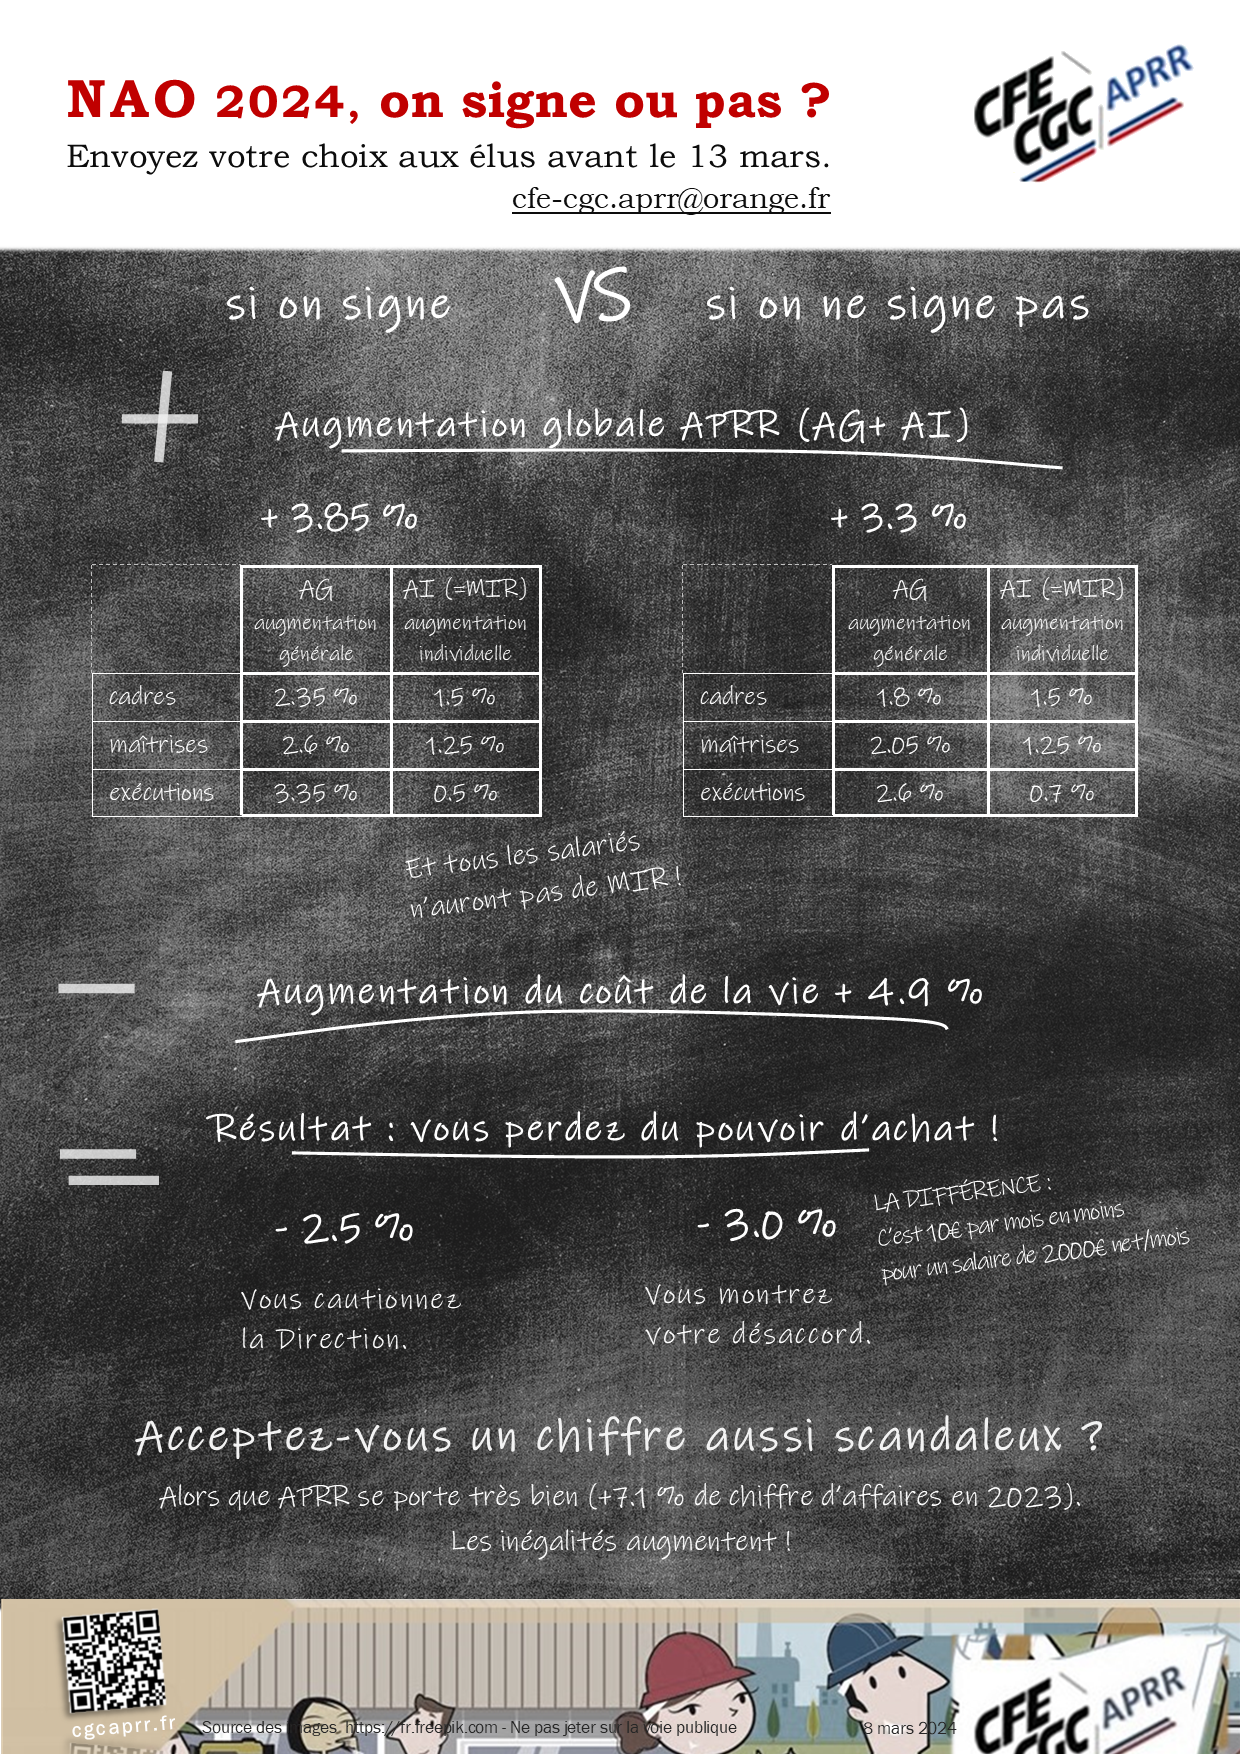 NAO 2024, on signe ou pas ?
Envoyez votre choix aux élus avant le 13 mars.
cfe-cgc.aprr@orange.fr
CFE
CGC APRR
si on signe VS si on ne signe pas
+
Augmentation globale APRR (AG+ AI)
+ 3.85 %
AG AI (=MIR)
augmentation augmentation
générale individuelle
cadres 2.35 % 1.5 %
maîtrises 2.6 % 1.25 %
exécutions 3.35 % 0.5 %
+ 3.3 %
AG AI (=MIR)
augmentation augmentation
générale individuelle
cadres 1.8 % 1.5 %
maîtrises 2.05 % 1.25 %
exécutions 2.6 % 0.7 %
Et tous les salariés
n'auront pas de MIR !
–
Augmentation du coût de la vie + 4.9 %
=
Résultat : vous perdez du pouvoir d'achat !
- 2.5 %
Vous cautionnez
la Direction.
- 3.0 %
Vous montrez
votre désaccord.
LA DIFFÉRENCE :
C'est 10€ par mois en moins
pour un salaire de 2000€ net/mois
Acceptez-vous un chiffre aussi scandaleux ?
Alors que APRR se porte très bien (+7.1 % de chiffre d'affaires en 2023).
Les inégalités augmentent !
cgcaprr.fr
Source des images https://fr.freepik.com - Ne pas jeter sur la voie publique
8 mars 2024
CFE
CGC APRR